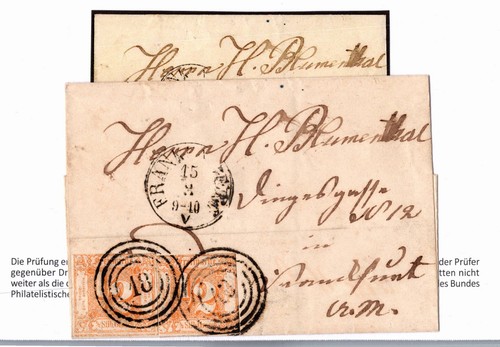 Herrn H. Blumenthal
Herrn H. Blumenthal
FRANKF
15
3
9-10
V
Dingesgasse
No 12
in
Frankfurt
a. M.
18
Die Prüfung e
der Prüfer
gegenüber Dr
tten nicht
weiter als die
es Bundes
Philatelistische